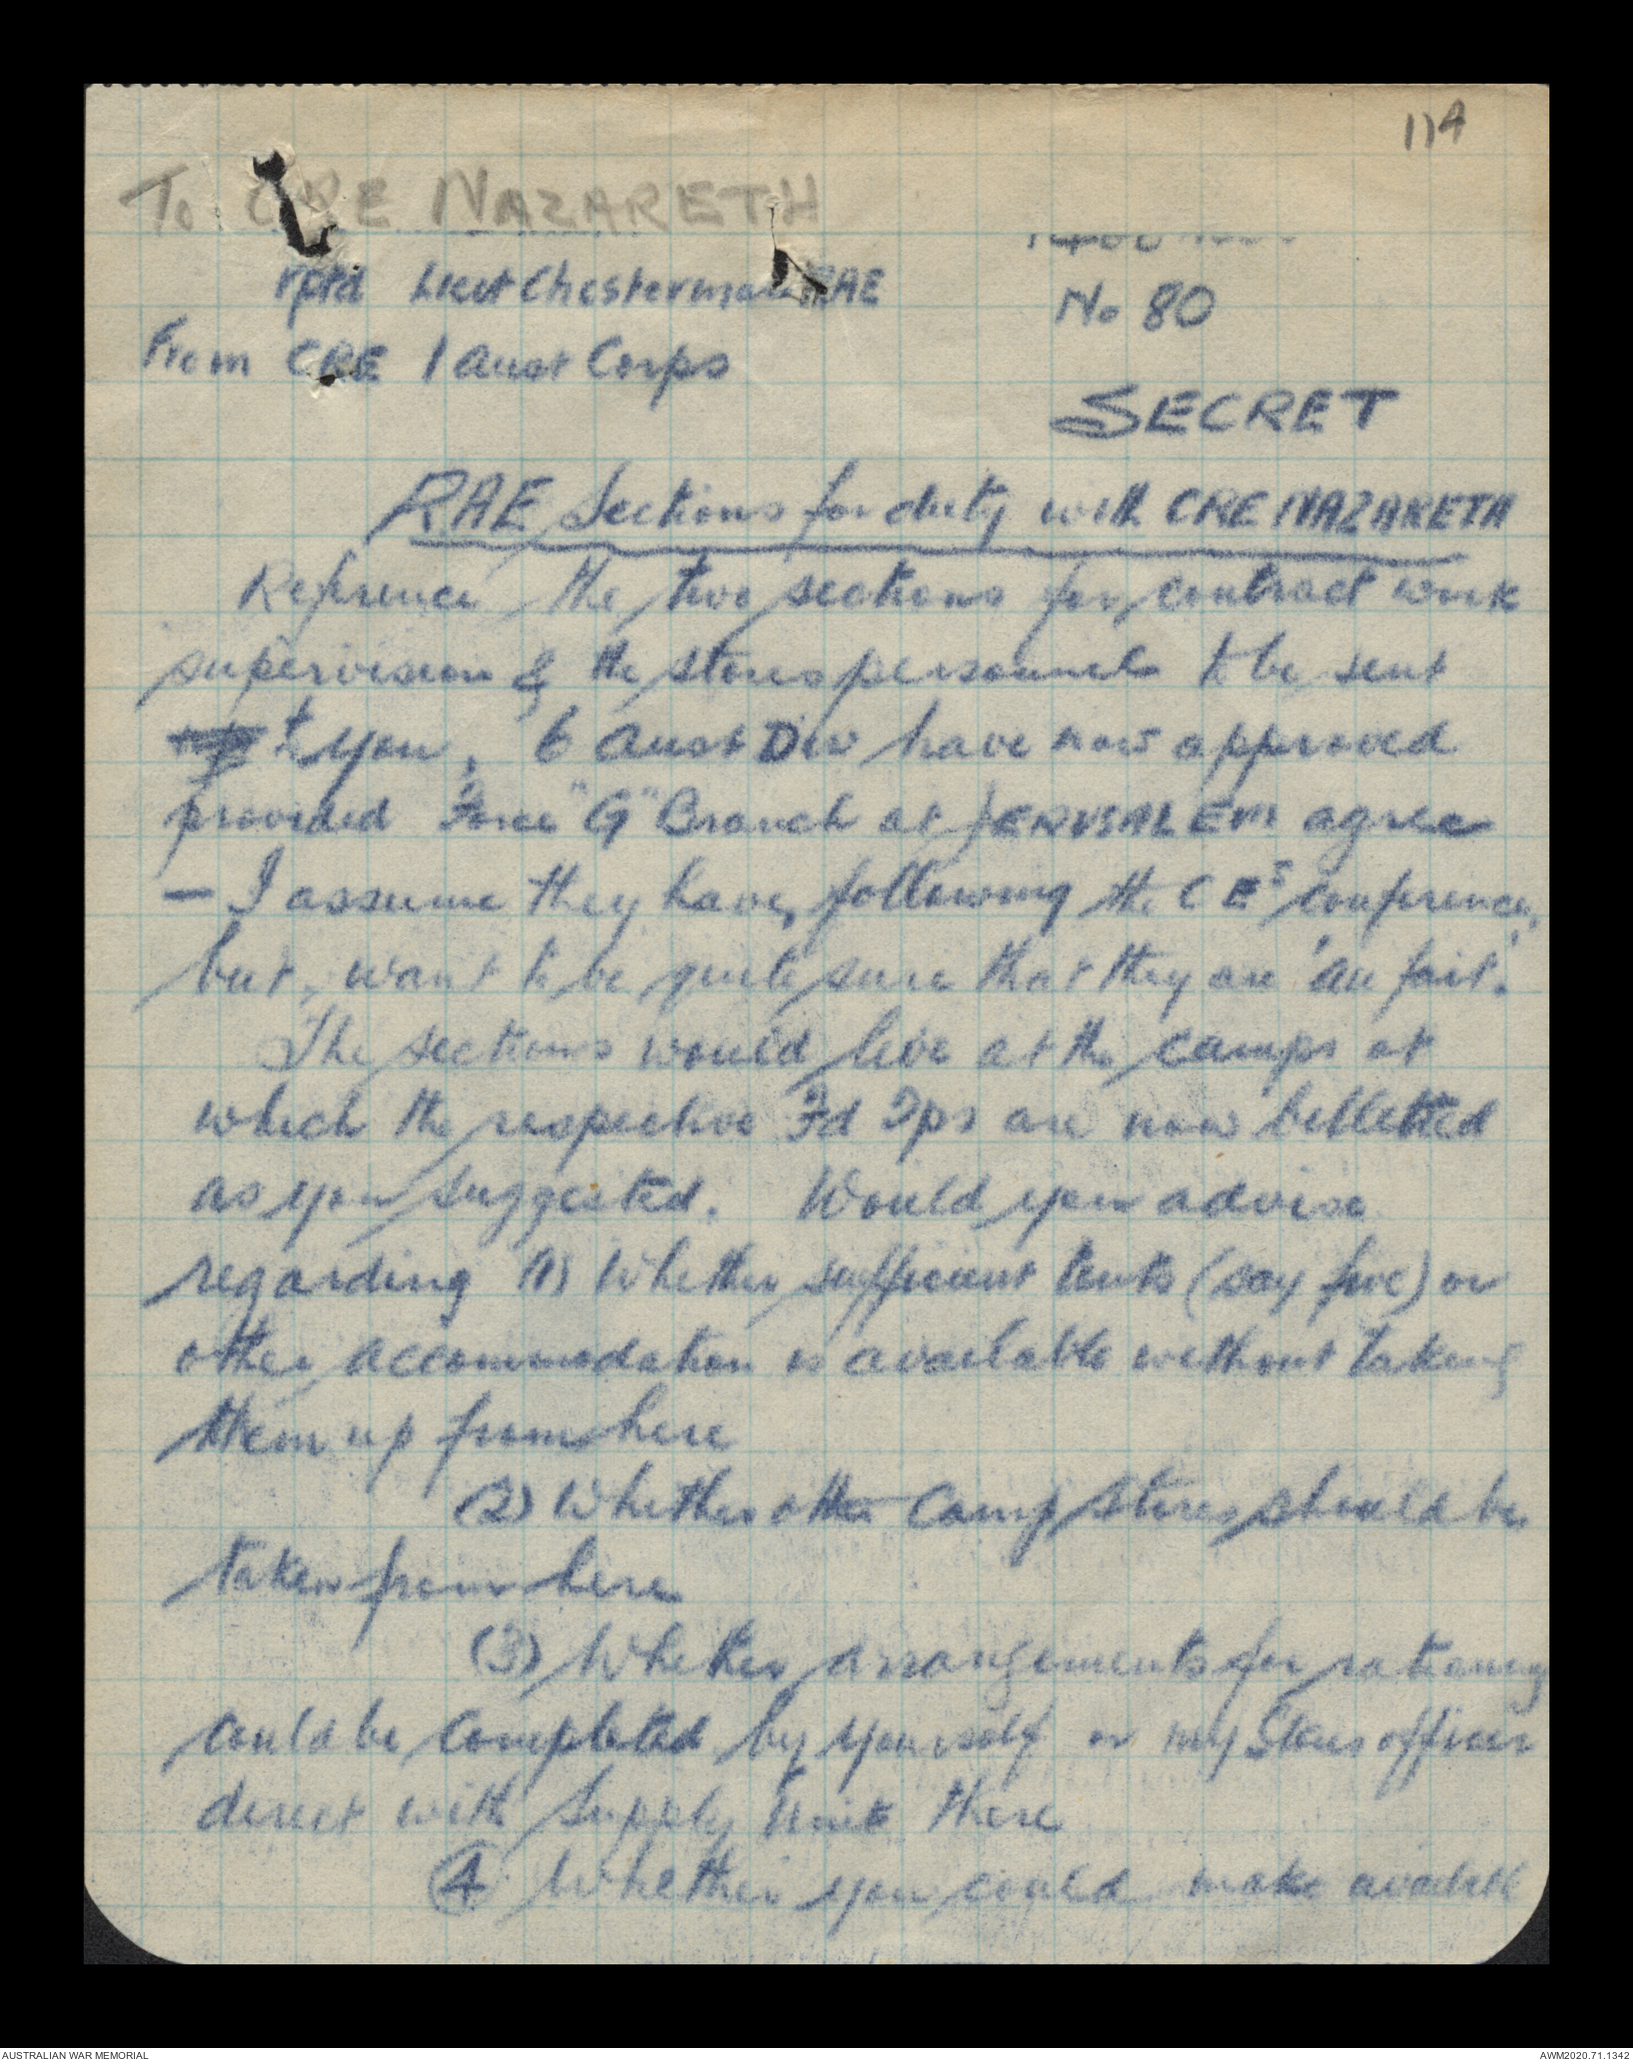 114
To CRE NAZARETH
rptd Lieut Chesterman RAE
No 80
From CRE 1 Aust Corps
SECRET
RAE Sections for duty with CRE NAZARETH
Reference the two sections for contract work
supervision & the stores personnel to be sent
to you, 6 Aust Div have now approved
provided Force "G" Branch at JERUSALEM agree
- I assume they have, following the CEs conference,
but, want to be quite sure that they are 'au fait'.
The sections would live at the camps at
which the respective Fd Tps are now billetted
as you suggested. Would you advise
regarding (1) Whether sufficient tents (say five) or
other accommodation is available without taking
them up from here
(2) Whether other Camp Stores should be
taken from here
(3) Whether arrangements for rationing
could be completed by yourself or my Stores officer
direct with Supply Unit there
(4) Whether you could make available
AUSTRALIAN WAR MEMORIAL
AWM2020.71.1342